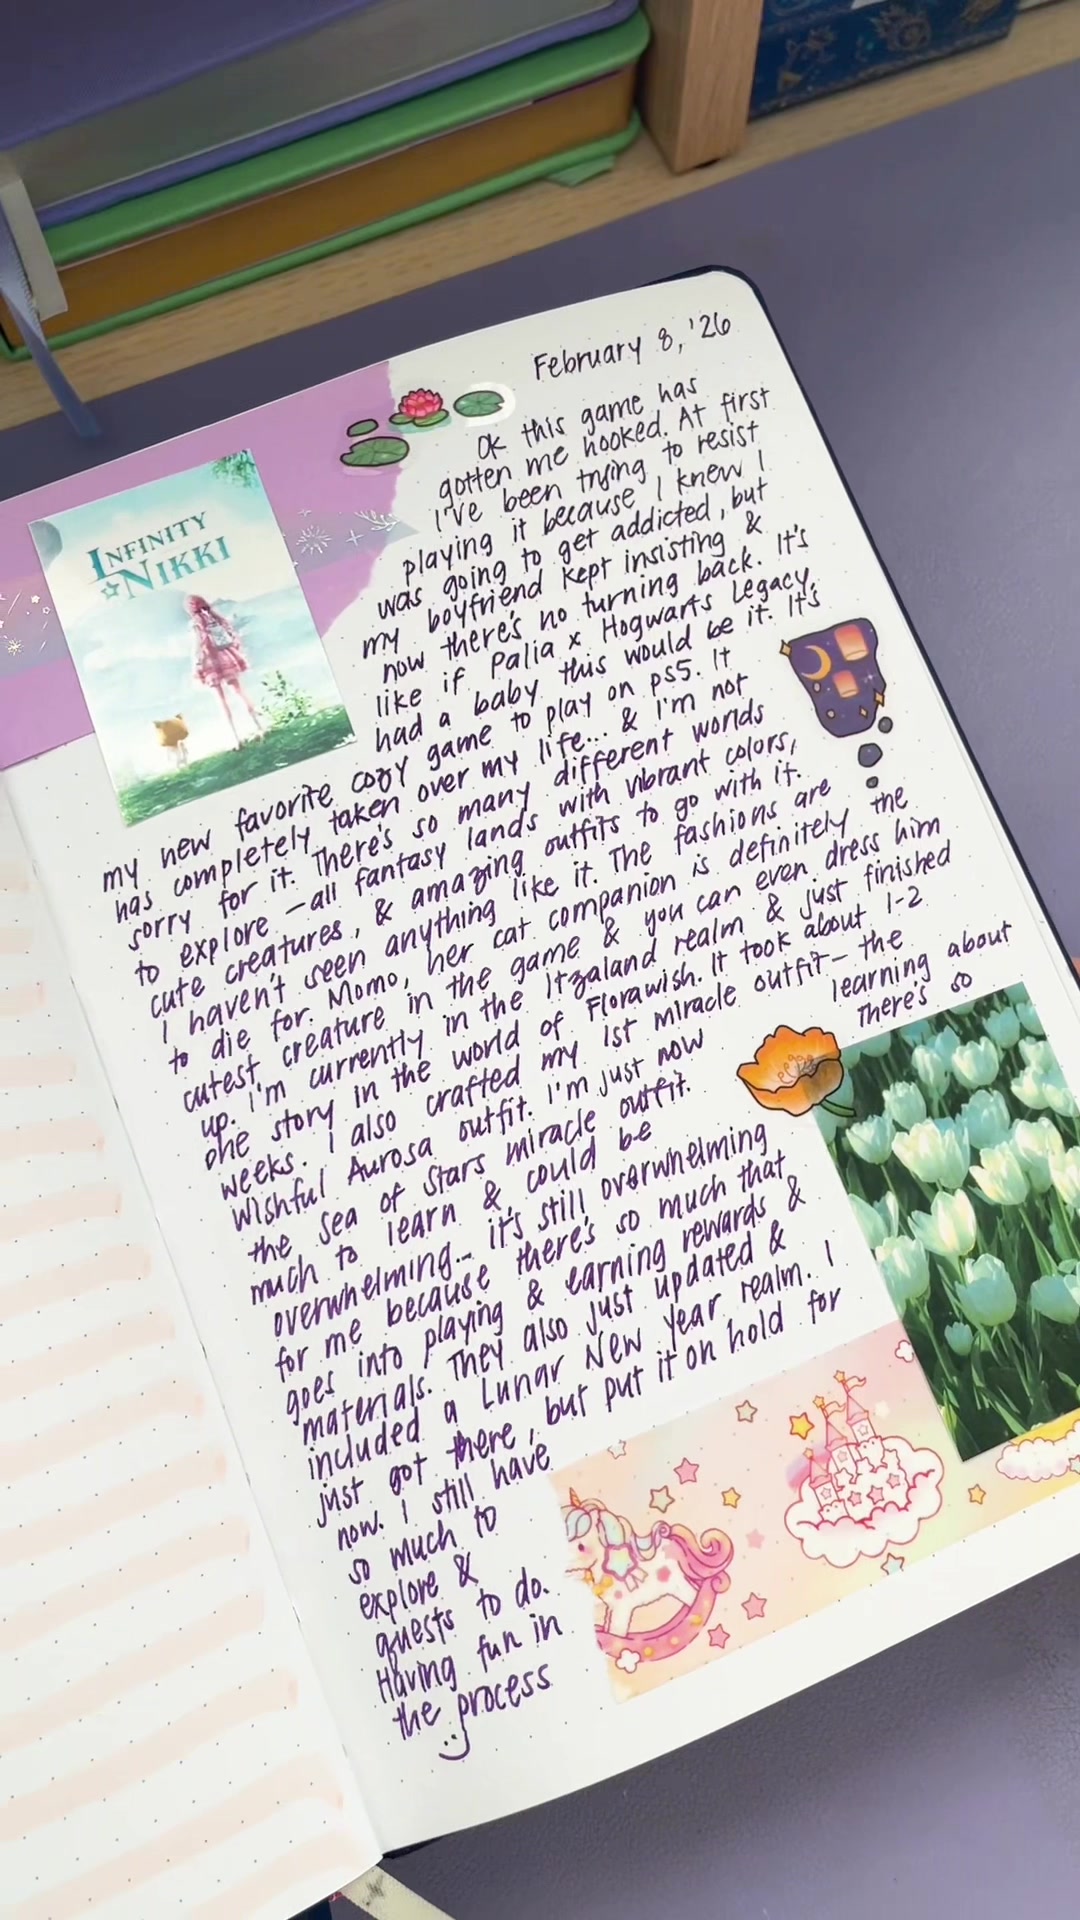 INFINITY
NIKKI
February 8, '26
Ok this game has
gotten me hooked. At first
I've been trying to resist
playing it because I knew I
was going to get addicted, but
my boyfriend kept insisting &
now there's no turning back. It's
like if Palia x Hogwarts Legacy
had a baby this would be it. It's
my new favorite cozy game to play on PS5. It
has completely taken over my life... & I'm not
sorry for it. There's so many different worlds
to explore – all fantasy lands with vibrant colors,
cute creatures, & amazing outfits to go with it.
I haven't seen anything like it. The fashions are
to die for. Momo, her cat companion is definitely the
cutest creature in the game & you can even dress him
up. I'm currently in the Itzaland realm & just finished
the story in the world of Florawish. It took about 1-2
weeks. I also crafted my 1st miracle outfit – the
wishful Aurosa outfit. I'm just now learning about
the sea of stars miracle outfit. There's so
much to learn & could be
overwhelming... it's still overwhelming
for me because there's so much that
goes into playing & earning rewards &
materials. They also just updated &
included a Lunar New Year realm. I
just got there, but put it on hold for
now. I still have
so much to
explore &
quests to do.
Having fun in
the process